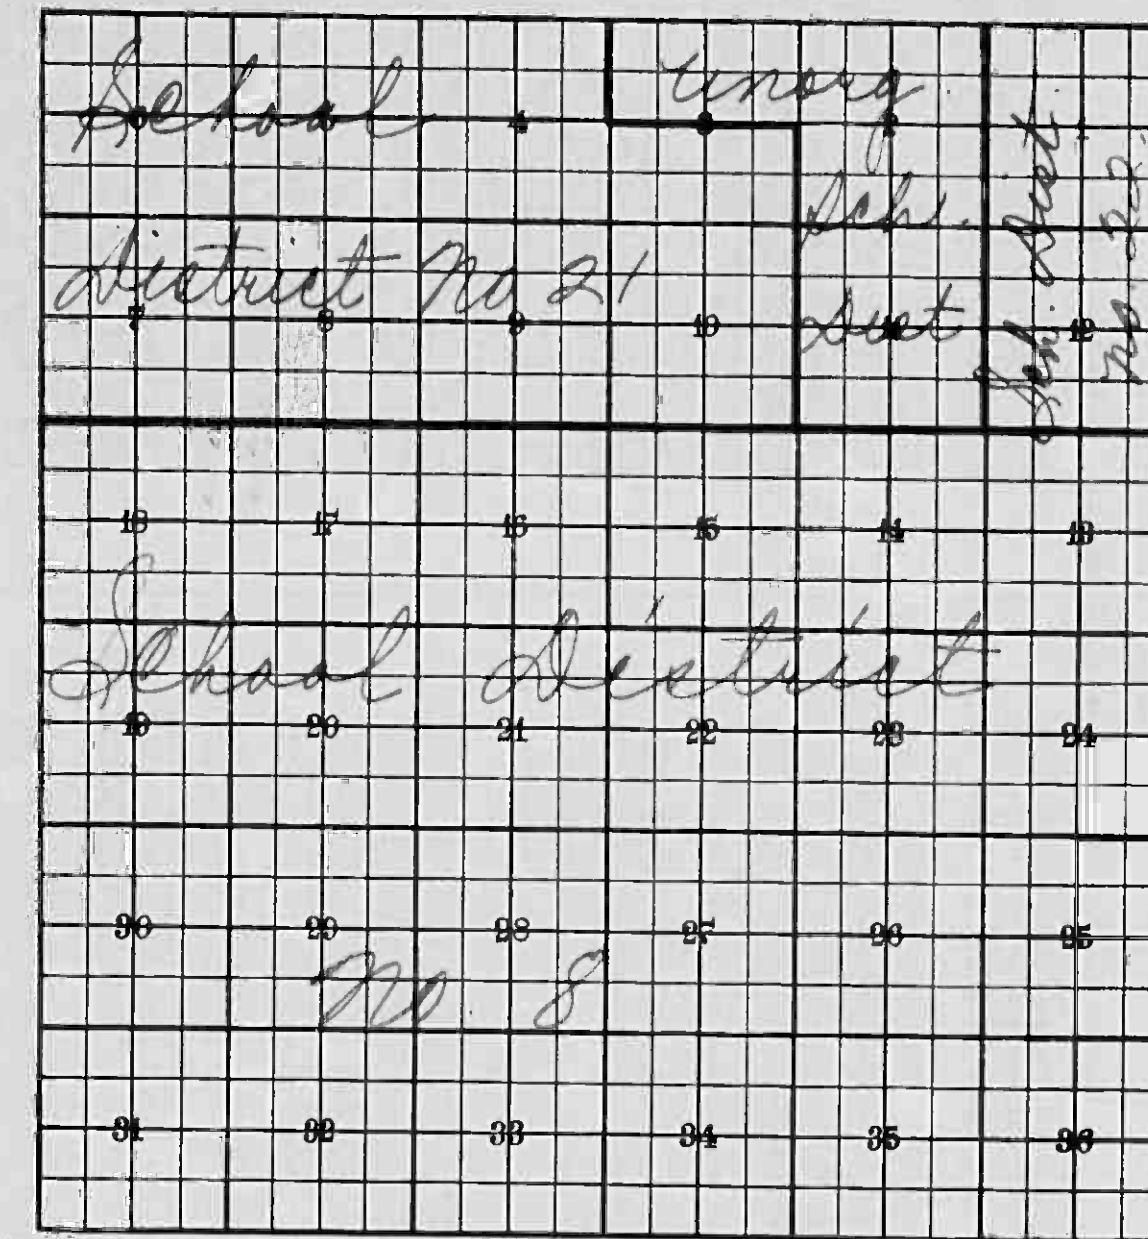 School
unorg
Schl.
Dist
Sch. Dist
No. 22.
District No 21
7 8 9 10 12
18 17 16 15 14 13
School District
19 20 21 22 23 24
30 29 28 27 26 25
No 8
31 32 33 34 35 36